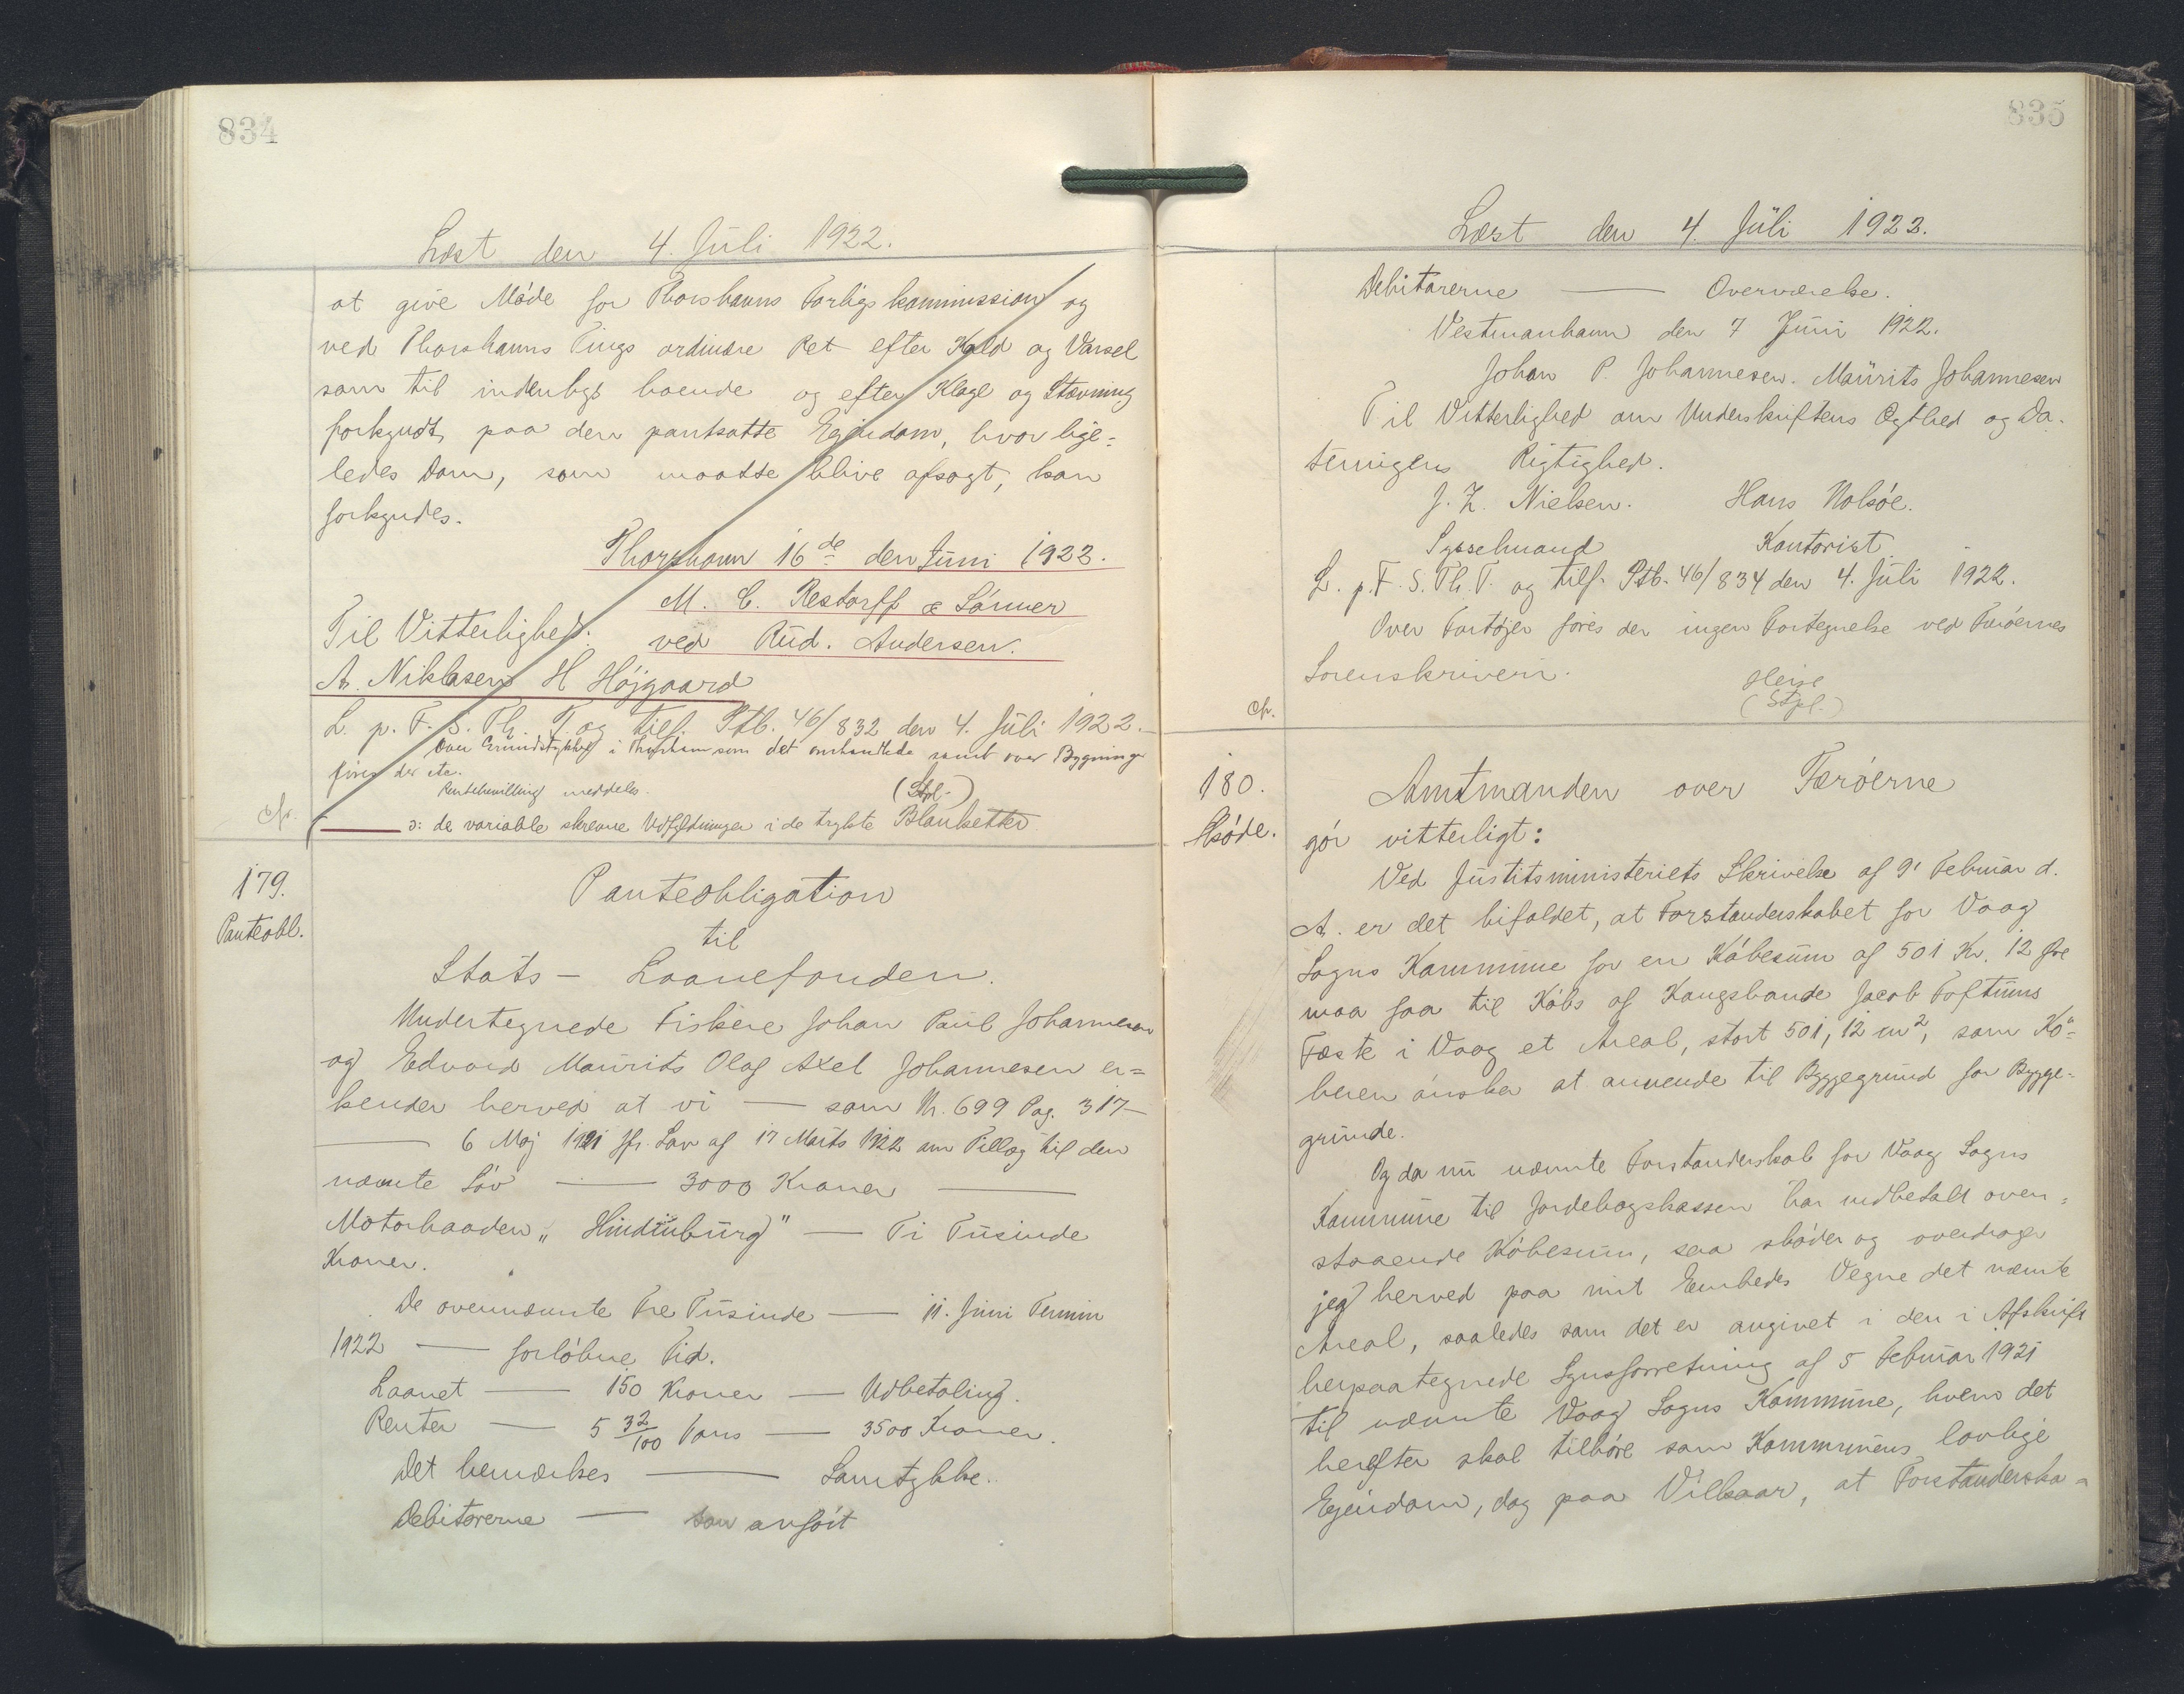 834
Læst den 4. Juli 1922.
at give Møde for Thorshavns Forligskommission og
ved Thorshavns Tings ordinære Ret efter Kald og Varsel
som til indenbygs boende og efter Klage og Stævning
forkyndt paa den pantsatte Ejendom, hvor lige=
ledes Dom, som maatte blive afsagt, kan
forkyndes.
Thorshavn 16de den Juni 1922.
M. C. Restorff & Sønner
Til Vitterlighed: ved Rud. Andersen.
A. Niklasen H Højgaard
L. p. F. S. Th. T. og tilf. Ptb. 46/832 den 4. Juli 1922.
Over Grundstykker i Thorshavn som det omhandlede samt over Bygninge
føres der etc.
Rentebevilling meddeles. (Stpl.)
ɔ: de variable skrevne Udfyldninger i de trykte Blanketter
179.
Panteobl.
Panteobligation
til
Stats- Laanefonden.
Undertegnede Fiskere Johan Paul Johannesen
og Edvard Maurits Olaf Axel Johannesen er=
kender herved at vi — som Nr. 699 Pag. 317—
— 6 Maj 1921 jfr. Lov af 17 Marts 1922 om Tillæg til den
nævnte Lov — 3000 Kroner —
Motorbaaden „Hindenburg" — Ti Tusinde
Kroner.
De ovennævnte Tre Tusinde — 11. Juni Termin
1922 — forløbne Tid.
Laanet — 150 Kroner — Udbetaling.
Renter — 5 32/100 Pans — 3500 Kroner.
Det bemærkes — Samtykke.
Debitorerne — som anført
835
Læst den 4. Juli 1922.
Debitorerne — Overværelse.
Vestmanhavn den 7 Juni 1922.
Johan P. Johannesen. Maurits Johannesen
Til Vitterlighed om Underskriftens Ægthed og Da=
teringens Rigtighed.
J. Z. Nielsen. Hans Nolsøe.
Sysselmand Kontorist.
L. p. F. S. Th. T. og tilf. Ptb. 46/834 den 4. Juli 1922.
Over Fartøjer føres der ingen Fortegnelse ved Færøernes
Sorenskriveri.
Heise
(Stpl.)
180.
Skøde.
Amtmanden over Færøerne
gør vitterligt:
Ved Justitsministeriets Skrivelse af 9' Februar d.
A. er det bifaldet, at Forstanderskabet for Vaag
Sogns Kommune for en Købesum af 501 Kr. 12 Øre
maa faa til Købs af Kongsbonde Jacob Toftums
Fæste i Vaag et Areal, stort 501,12 m2, som Kø=
beren ønsker at anvende til Byggegrund for Bygge=
grunde.
Og da nu nævnte Forstanderskab for Vaag Sogns
Kommune til Jordebogskassen har indbetalt oven=
staaende Købesum, saa skøder og overdrager
jeg herved paa mit Embedes Vegne det nævnte
Areal, saaledes som det er angivet i den i Afskrift
herpaategnede Synsforretning af 5 Februar 1921
til nævnte Vaag Sogns Kommune, hvem det
herefter skal tilhøre som Kommunens lovlige
Ejendom, dog paa Vilkaar, at Forstanderska=